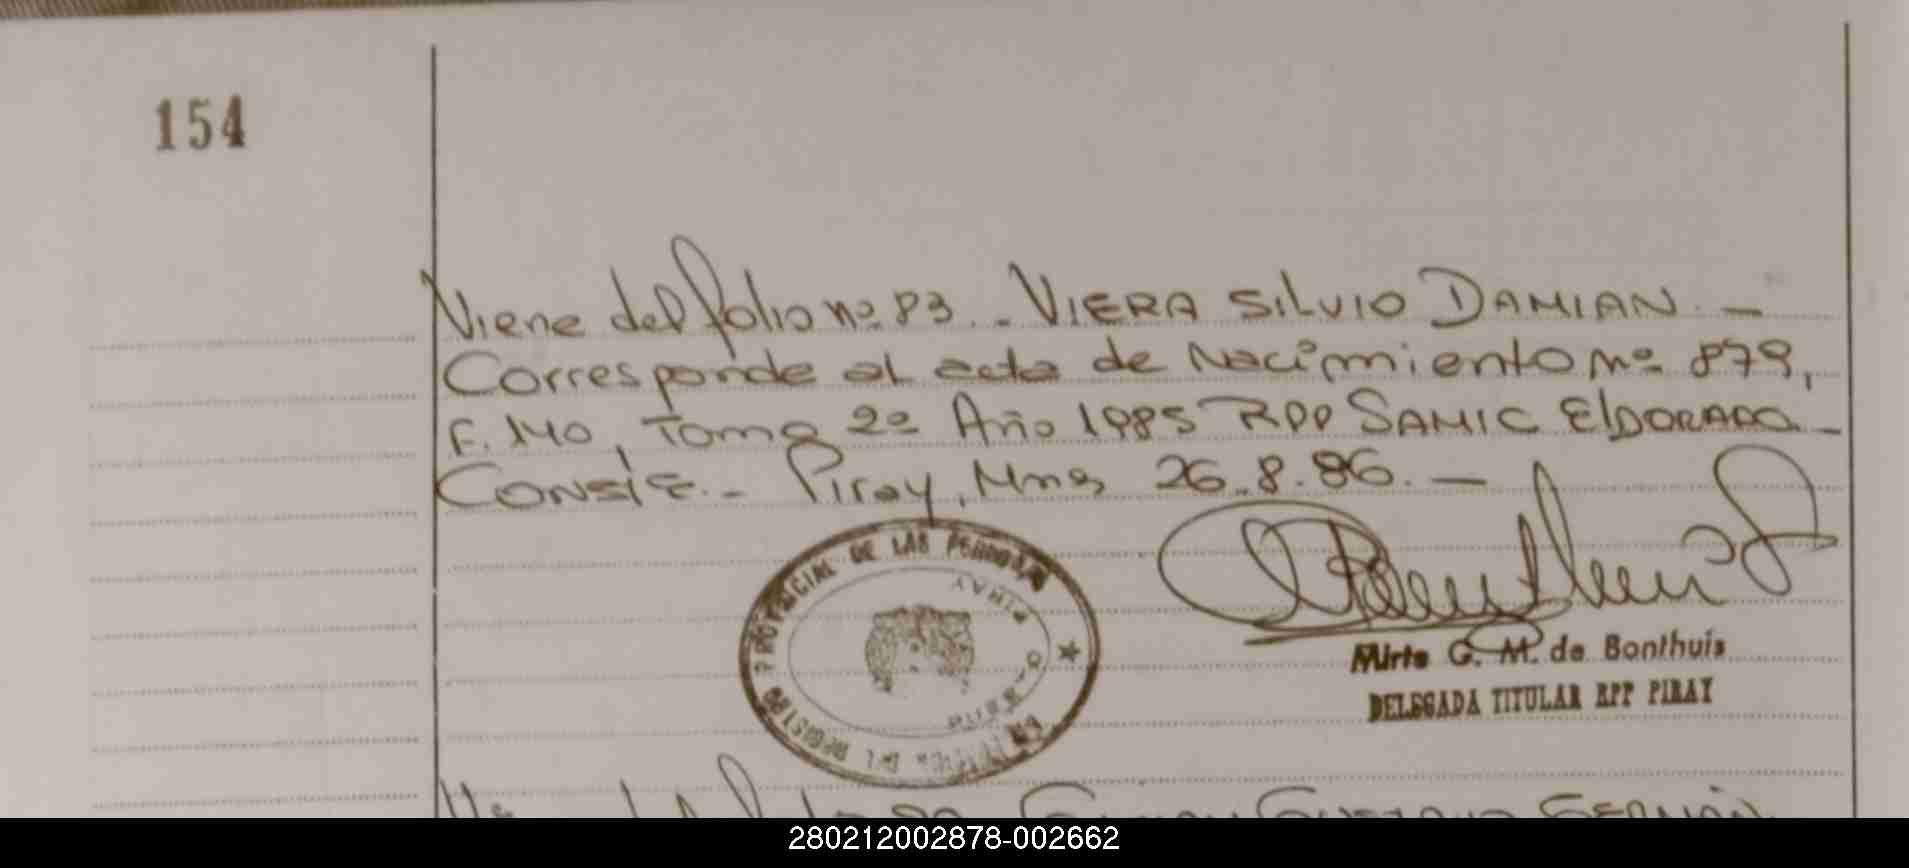 154
Viene del folio nº 83.- VIERA SILVIO DAMIAN.-
Corresponde al acta de Nacimiento nº 879,
F. 140, Tomo 2º Año 1985 RPP SAMIC ElDORADO.-
CONSTE.- Piray, Mnes 26.8.86.-
PROVINCIAL DE LAS PERSONAS
PIRAY
DEL REGISTRO
Mirta G. M. de Bonthuis
DELEGADA TITULAR RPP PIRAY
280212002878-002662